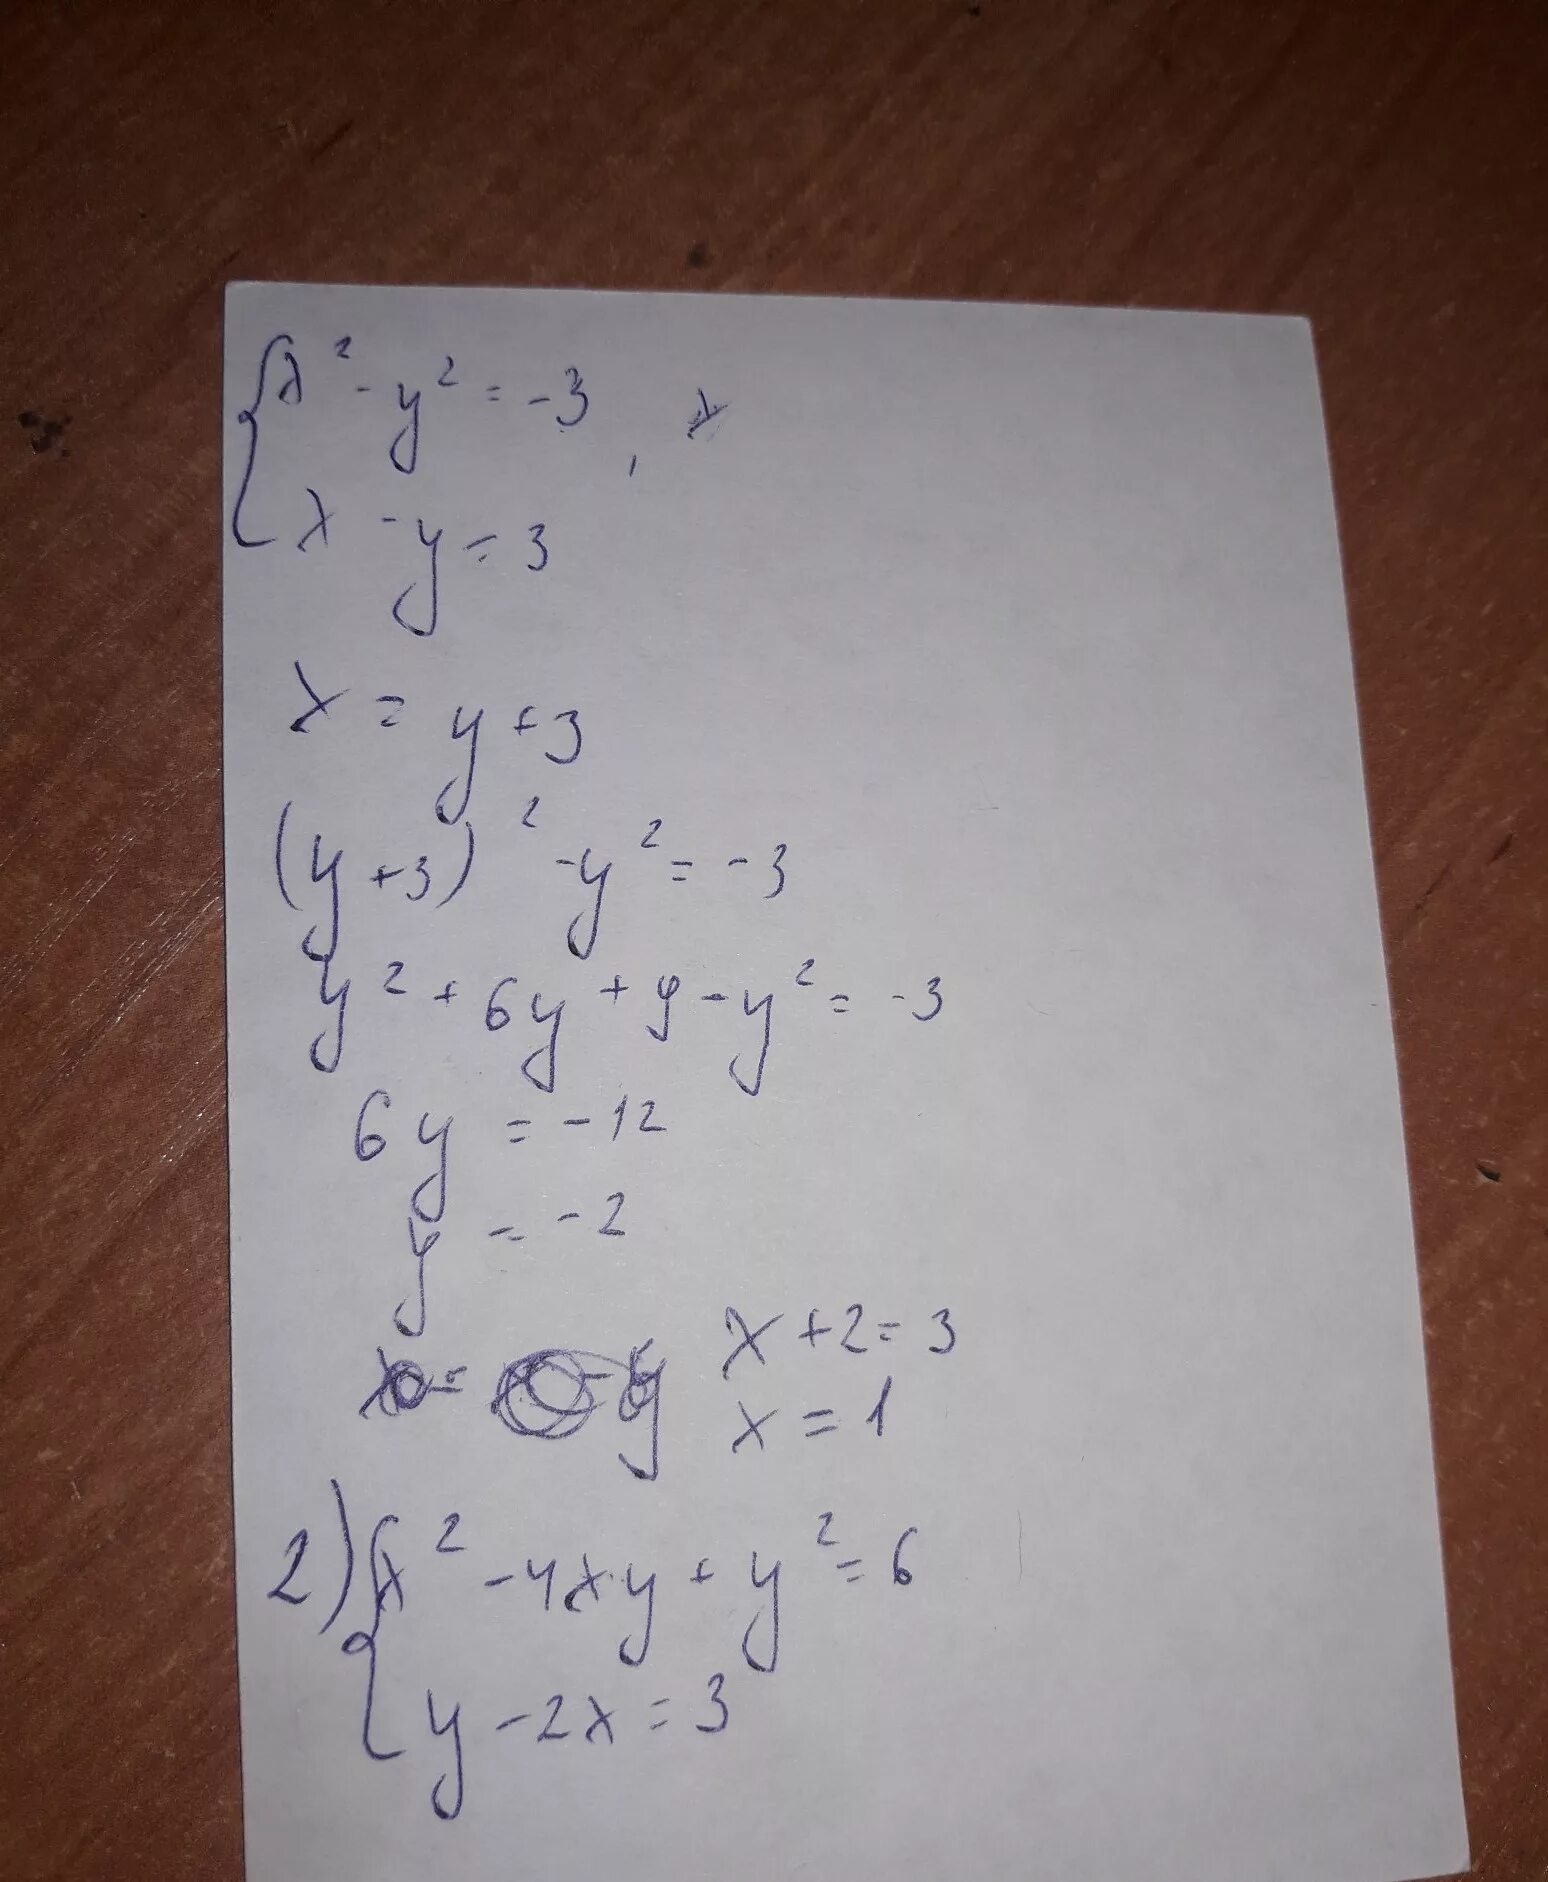 {x² - y² = -3, x
x - y = 3
x = y + 3
(y + 3)² - y² = -3
y² + 6y + 9 - y² = -3
6y = -12
y = -2
x + 2 = 3
x = 1
2) {x² - 4xy + y² = 6
y - 2x = 3